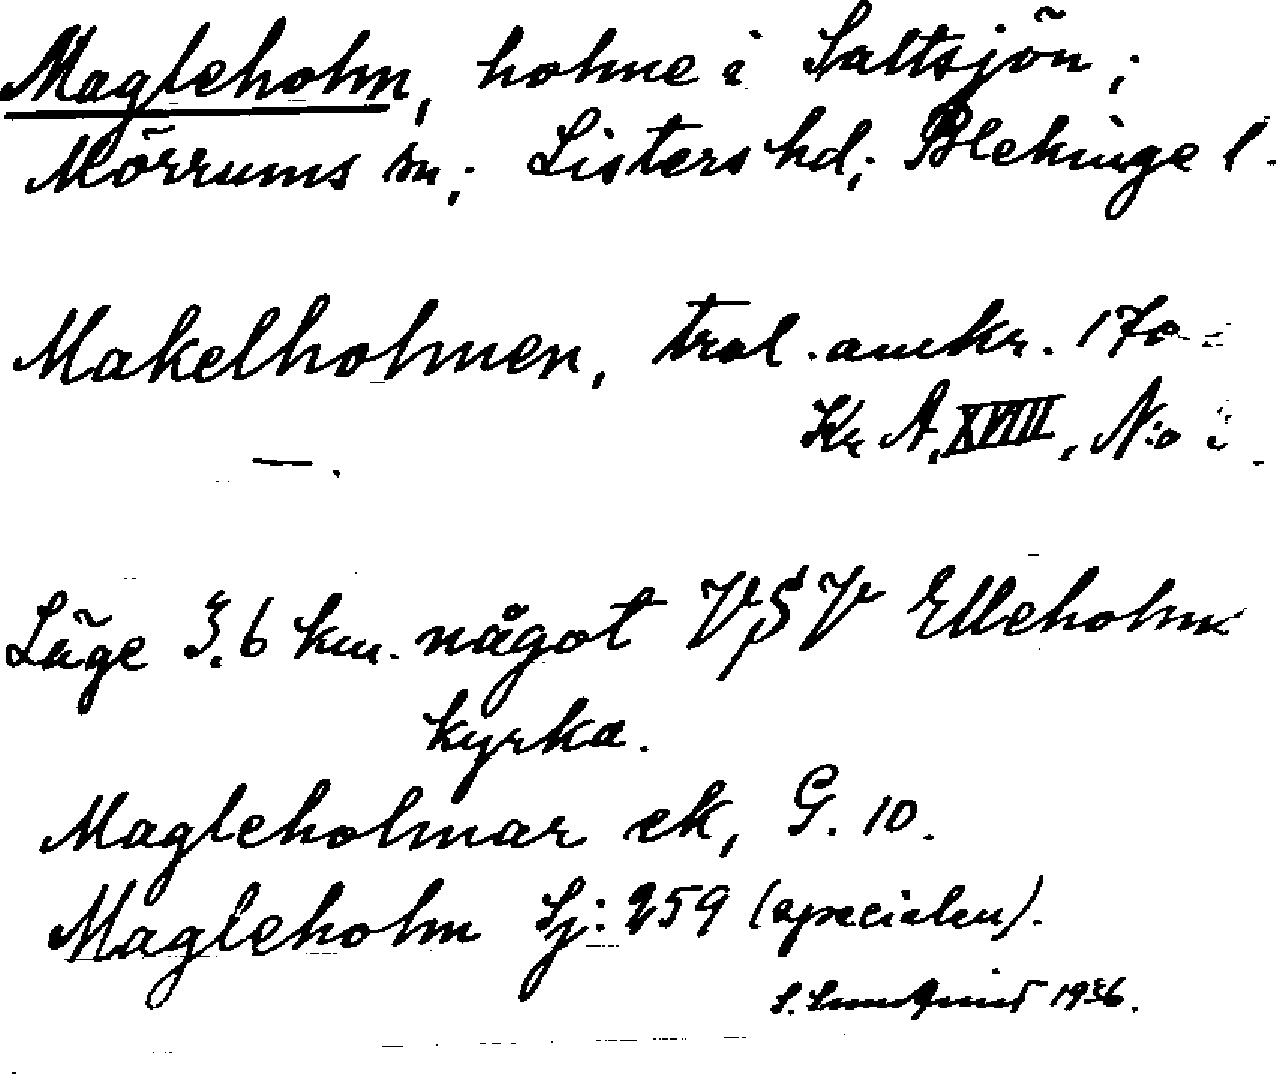 Magleholm, holme i Saltsjön;
Mörrums sn; Listers hd; Blekinge l.
Makelholmen, trol. omkr. 170
Kr A, XVIII, N:o
— .
Läge 3.6 km. något VSV Elleholm
kyrka.
Magleholmar ek, G. 10.
Magleholm Sj: 259 (specialen).
S. 1936.